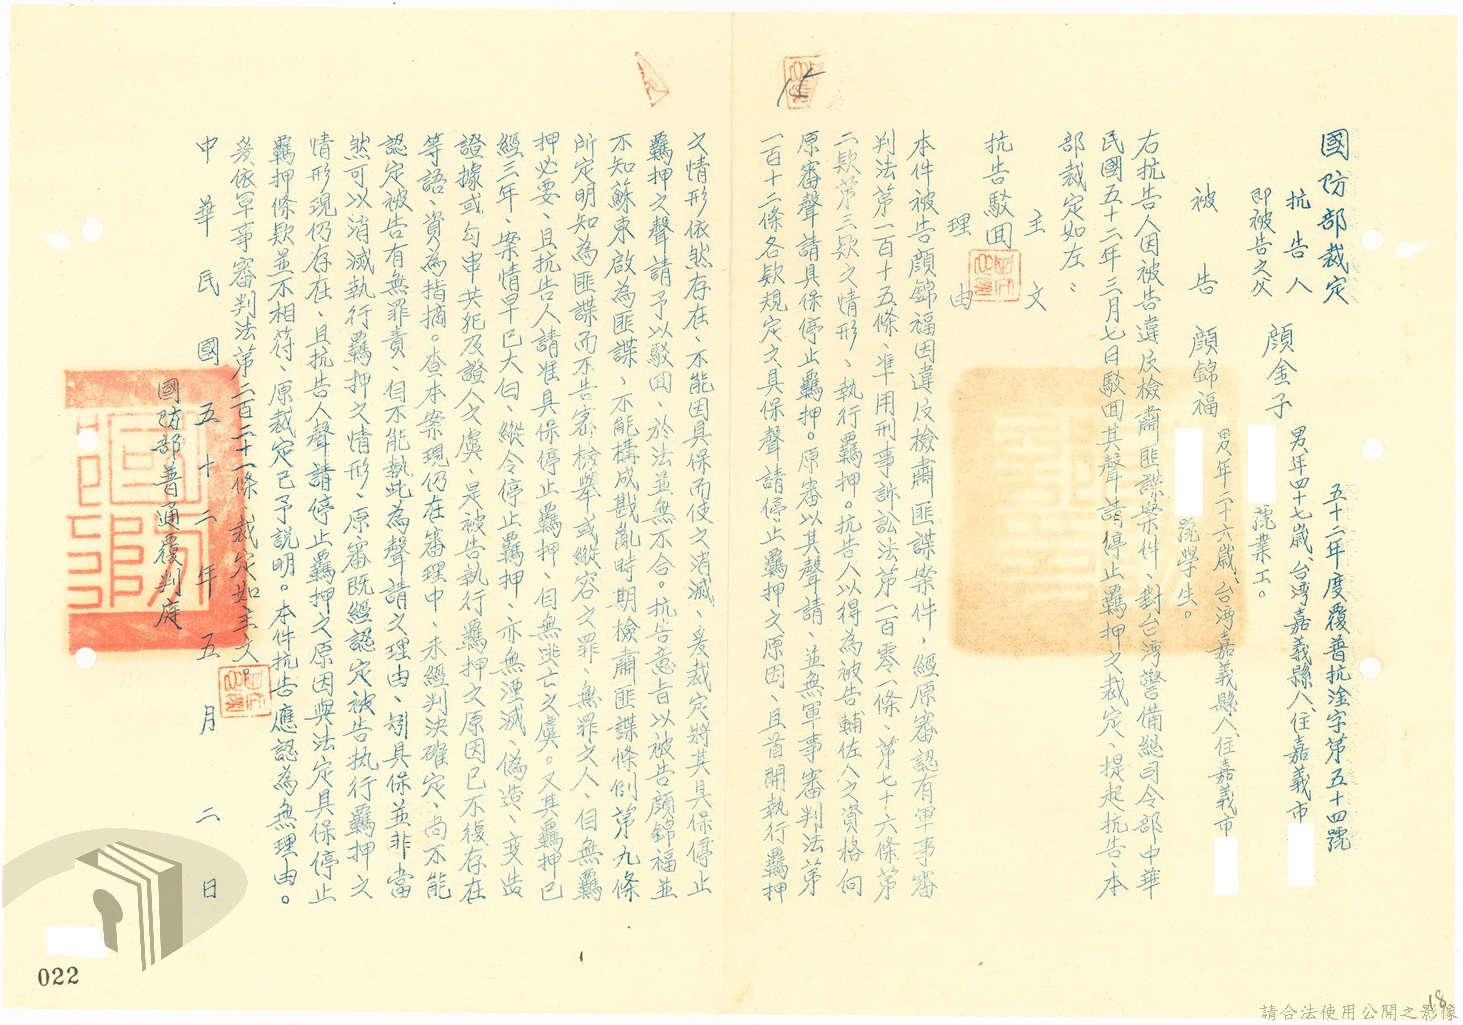 國防部裁定
五十二年度覆普抗淦字第五十四號
抗告人
即被告之父
顏金子
男、年四十七歲、台灣嘉義縣人住嘉義市
號業工。
被告
顏錦福
男、年二十六歲、台灣嘉義縣人、住嘉義市
號學生。
右抗告人因被告違反檢肅匪諜案件、對台灣警備總司令部中華
民國五十二年三月七日駁回其聲請停止羈押之裁定、提起抗告、本
部裁定如左：
主文
抗告駁回
理由
本件被告顏錦福因違反檢肅匪諜案件，經原審認有軍事審
判法第一百十五條、準用刑事訴訟法第一百零一條、第七十六條第
二款第三款之情形、執行羈押。抗告人以得為被告輔佐人之資格向
原審聲請具保停止羈押。原審以其聲請、並無軍事審判法第
一百十二條各款規定之具保聲請停止羈押之原因、且首開執行羈押
之情形依然存在、不能因具保而使之消滅、爰裁定將其具保停止
羈押之聲請予以駁回、於法並無不合。抗告意旨以被告顏錦福並
不知蘇東啟為匪諜、不能構成戡亂時期檢肅匪諜條例第九條
所定明知為匪諜而不告密檢舉或縱容之罪、無罪之人、自無羈
押必要、且抗告人請准具保停止羈押、自無逃亡之虞。又其羈押已
經三年、案情早已大白、縱令停止羈押、亦無湮滅、偽造、變造
證據或勾串共犯及證人之虞、是被告執行羈押之原因已不復存在
等語、資為指摘。查本案現仍在審理中、未經判決確定、尚不能
認定被告有無罪責、自不能執此為聲請之理由、矧具保並非當
然可以消滅執行羈押之情形、原審既經認定被告执行羈押之
情形現仍存在、且抗告人聲請停止羈押之原因與法定具保停止
羈押條款並不相符、原裁定已予說明。本件抗告應認為無理由。
爰依軍事審判法第二百二十一條裁定如主文。
中華民國五十二年五月二日
國防部普通覆判庭
15
18
022
請合法使用公開之影像